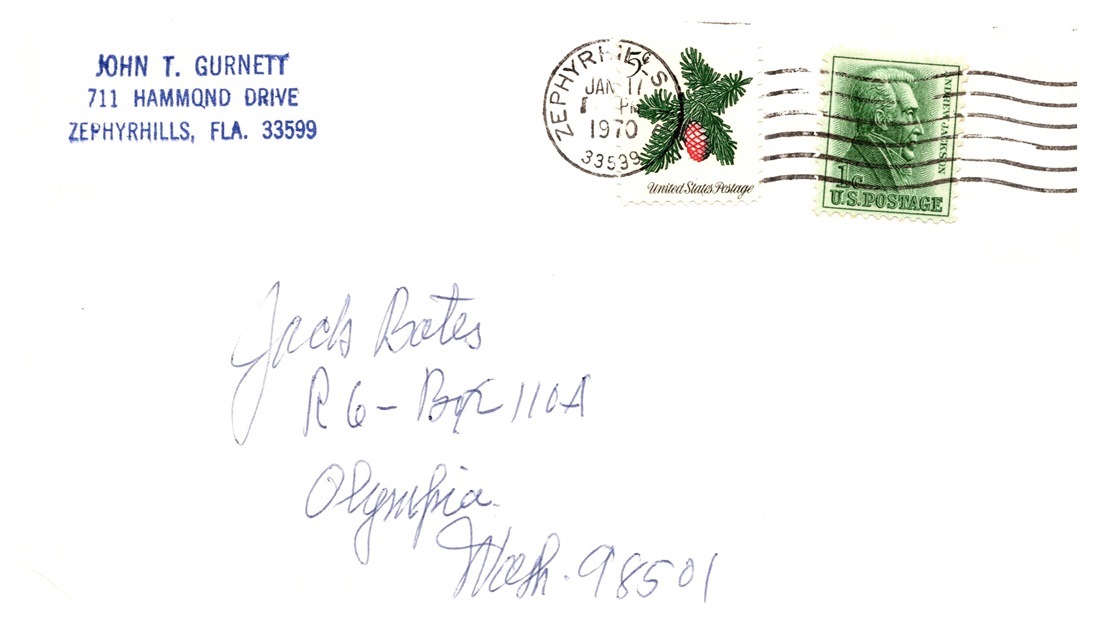 JOHN T. GURNETT
711 HAMMOND DRIVE
ZEPHYRHILLS, FLA. 33599
ZEPHYRHILLS
JAN 17
PM
1970
33599
5¢
United States Postage
ANDREW JACKSON
1¢
U.S. POSTAGE
Jack Bates
R 6 - Box 110A
Olympia
Wash. 98501